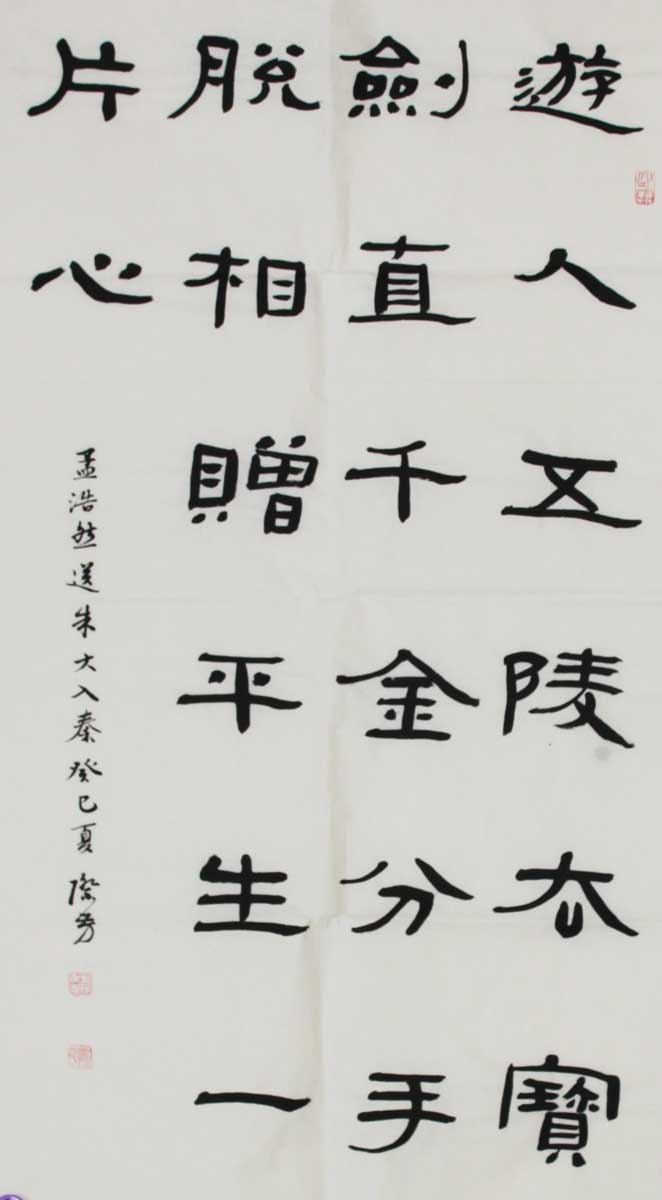 遊人五陵去寶
劍直千金分手
脱相贈平生一
片心
孟浩然送朱大入秦癸巳夏芳